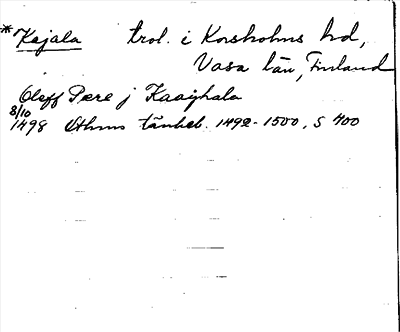 *Kajala trol. i Korsholms hd,
Vasa län, Finland
Oleff Pere j Kaaijhala
8/10
1498 Sthms tänkeb. 1492-1500, s 400